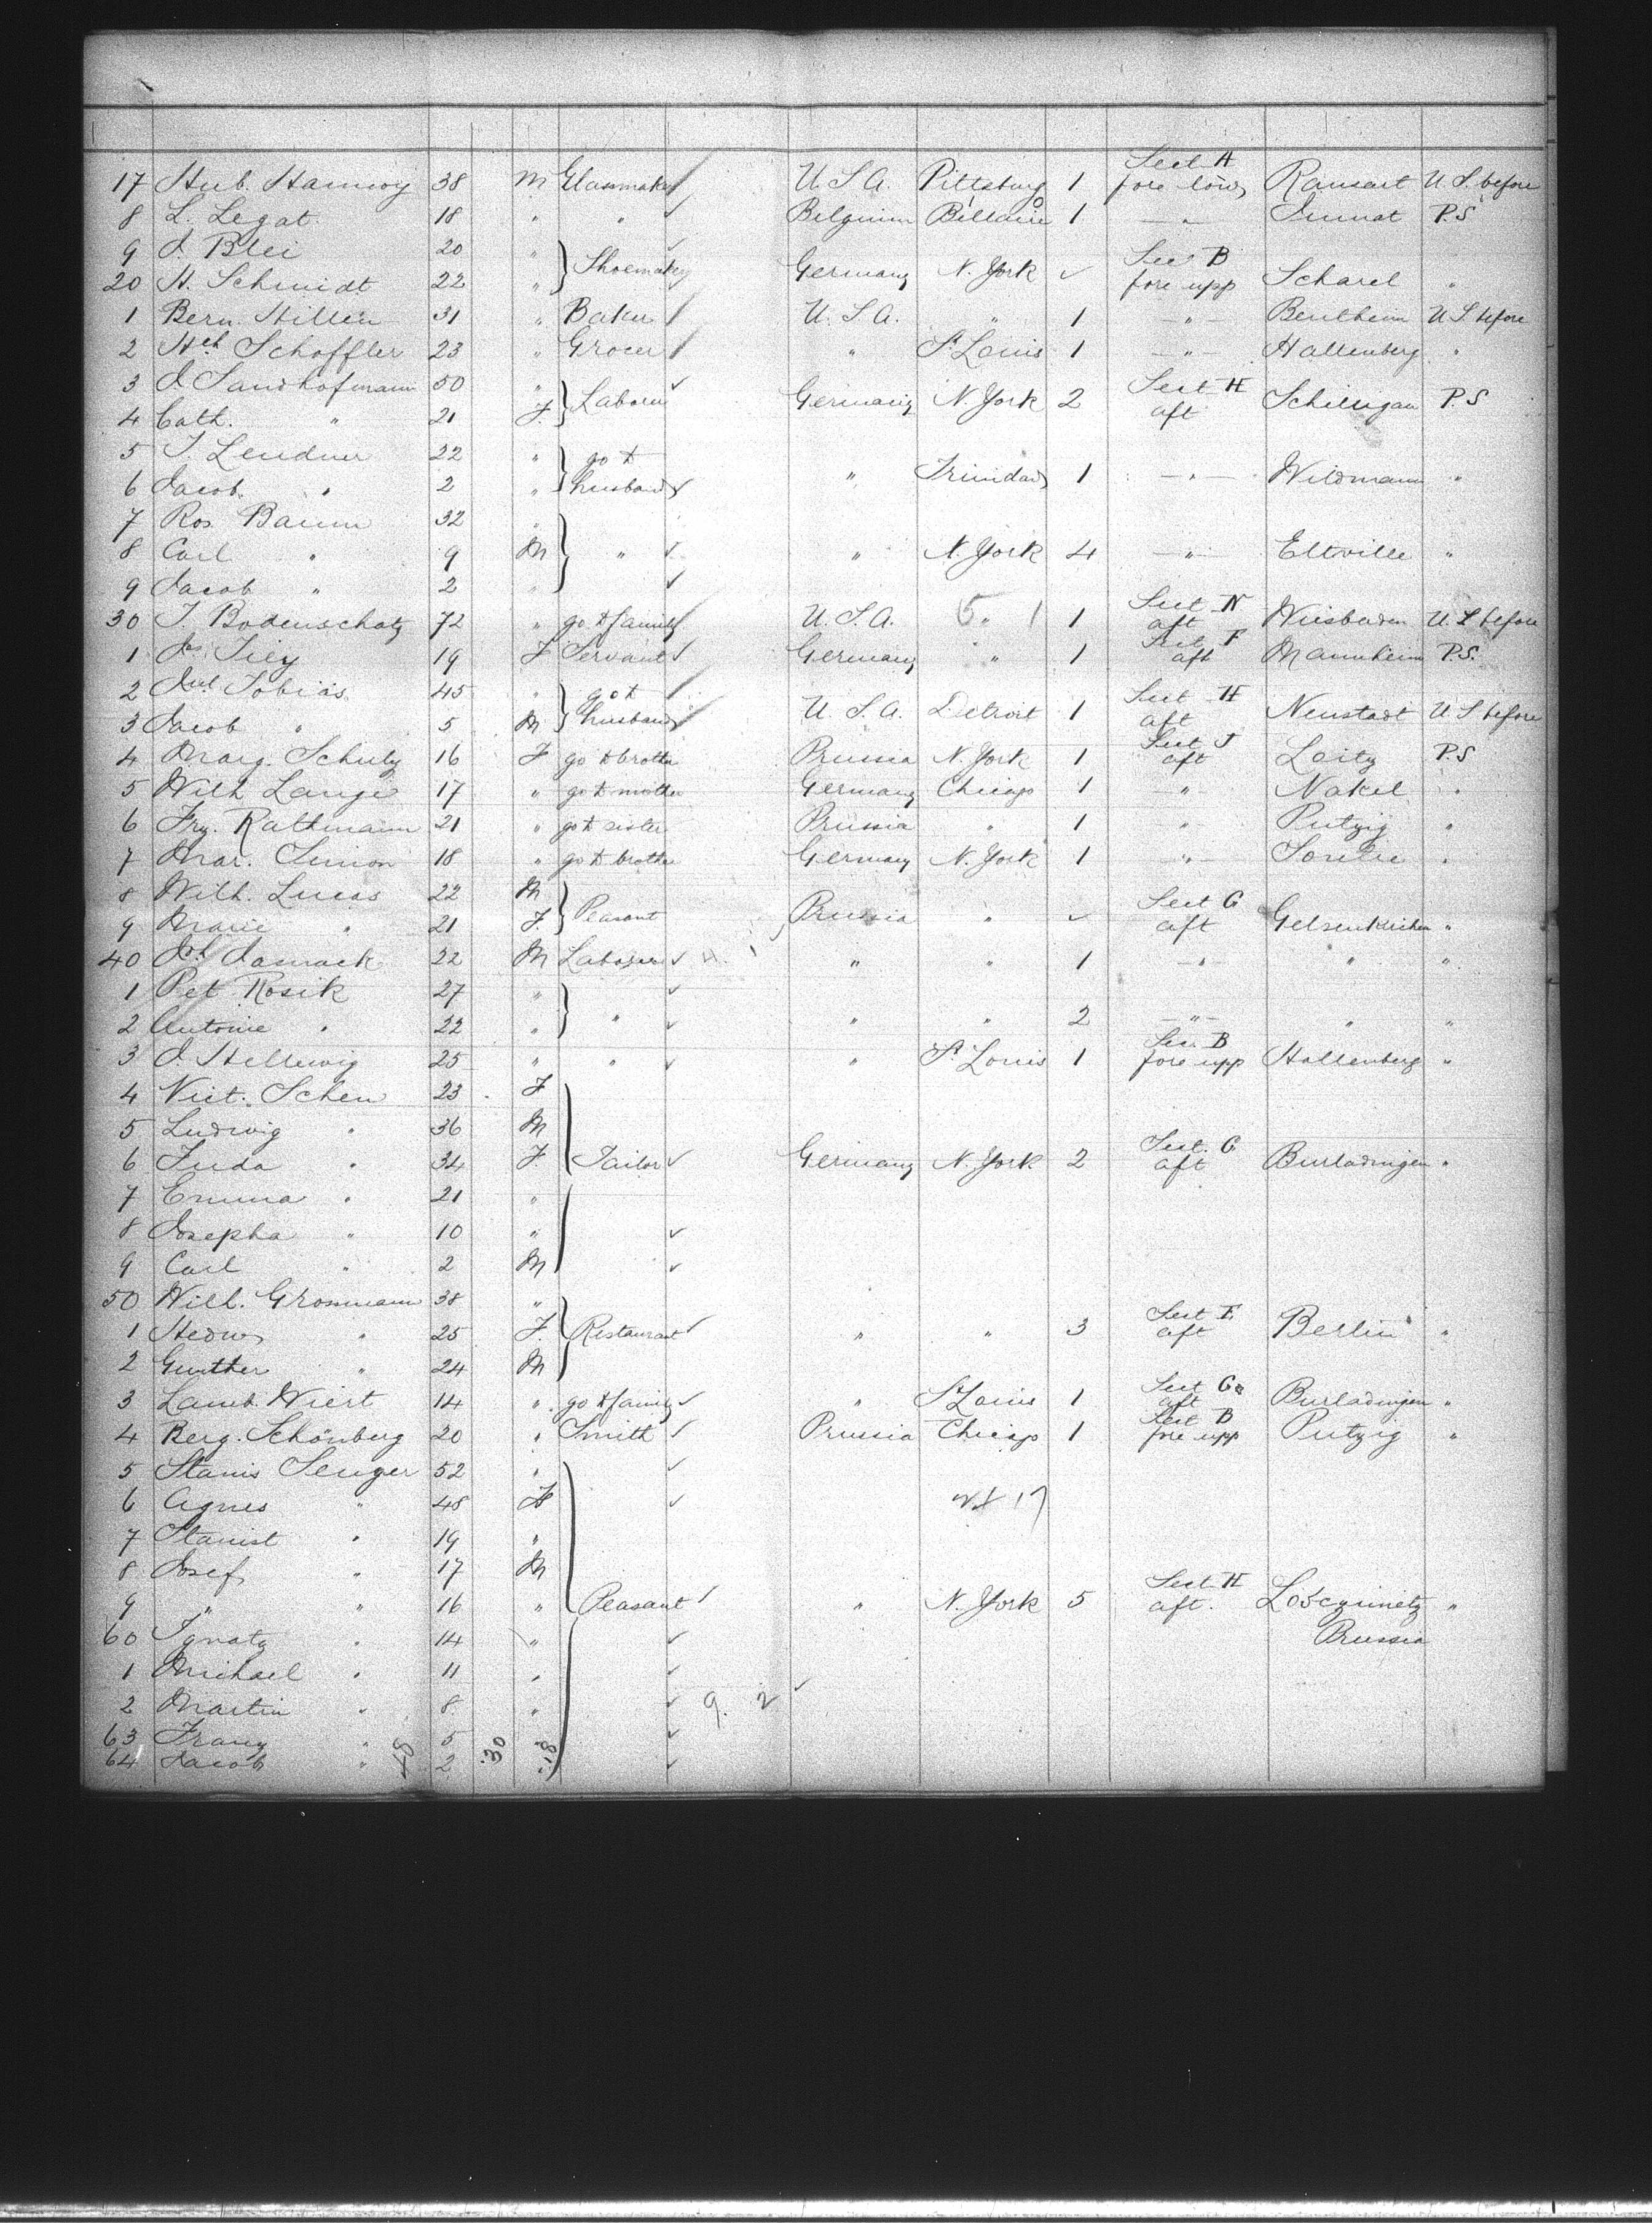 17 Hub. Hamvoy 38 M Glasmaker U.S.A. Pittsburg 1 Sect A fore low Ransart U.S. before
8 L. Legat 18 " " Belgium Bellaire 1 — " — Jumat P.S
9 J. Blei 20 "
20 H. Schmidt 22 " Shoemaker Germany N. York Sec B fore upp Scharel "
1 Bern. Hillen 31 " Baker U.S.A. " 1 — " — Bentheim U.S. before
2 Hch Schoffler 23 " Grocer " St Louis 1 — " — Hallenberg "
3 J Sandhofmann 50 "
4 Cath. " 21 F. Laborer Germany N. York 2 Sect H aft P.S
5 T. Lendner 22 " go to
6 Jacob " 2 " husband " Trinidad 1 — " — Wildmann "
7 Ros. Baum 32 "
8 Carl " 9 M " " N. York 4 — " — Eltville "
9 Jacob " 2 "
30 T. Bodenschatz 72 " go to family U.S.A. " 1 Sect H aft Wiesbaden U.S before
1 Js. Tiey 19 F Servant Germany " 1 Sect F aft Mannheim P.S.
2 Jul Tobias 45 " go to
3 Jacob " 5 M husband U.S.A. Detroit 1 Sect H aft Neustadt U S before
4 Marg. Schulz 16 F go to brother Prussia N. York 1 Sect J aft Loitz P.S
5 Wilh Lange 17 " go to mother Germany Chicago 1 — " — Nakel "
6 Frz. Rathmann 21 " go to sister Prussia " 1 " Putzig "
7 Mar. Simon 18 " go to brother Germany N. York 1 — " —
8 Wilh. Lucas 22 M
9 Marie " 21 F. Peasant Prussia " Sect G aft Gelsenkirchen "
40 Joh Jasnack 22 M Laborer " " 1 — " — " "
1 Pet Rosik 27 "
2 Antonie " 22 " " " " 2 — " — " "
3 J. Hellewig 25 " " " St Louis 1 Sec. B fore upp Hallenberg "
4 Vict. Scheu 23 F
5 Ludwig " 36 M
6 Juda " 34 F Tailor Germany N. York 2 Sect. G aft Burladingen "
7 Emma " 21 "
8 Josepha " 10 "
9 Carl " 2 M
50 Wilh. Grosmann 38 "
1 Hedw " 25 F. Restaurant " " 3 Sect E aft Berlin "
2 Gunther " 24 M
3 Lamb. Wiert 14 " go to family " St Louis 1 Sect G aft Burladingen "
4 Berg. Schönberg 20 " Smith Prussia Chicago 1 Sect B fore upp Putzig "
5 Stanis Senger 52 "
6 Agnes " 48 F 17
7 Stanist " 19 "
8 Josef " 17 M
9 " " 16 " Peasant " N. York 5 Sect H aft. Loscyinietz "
60 Ignatz " 14 " Prussia
1 Michael " 11 "
2 Martin " 8 " 9. 2
63 Franz " 5 "
64 Jacob " 2 "
48 30 18